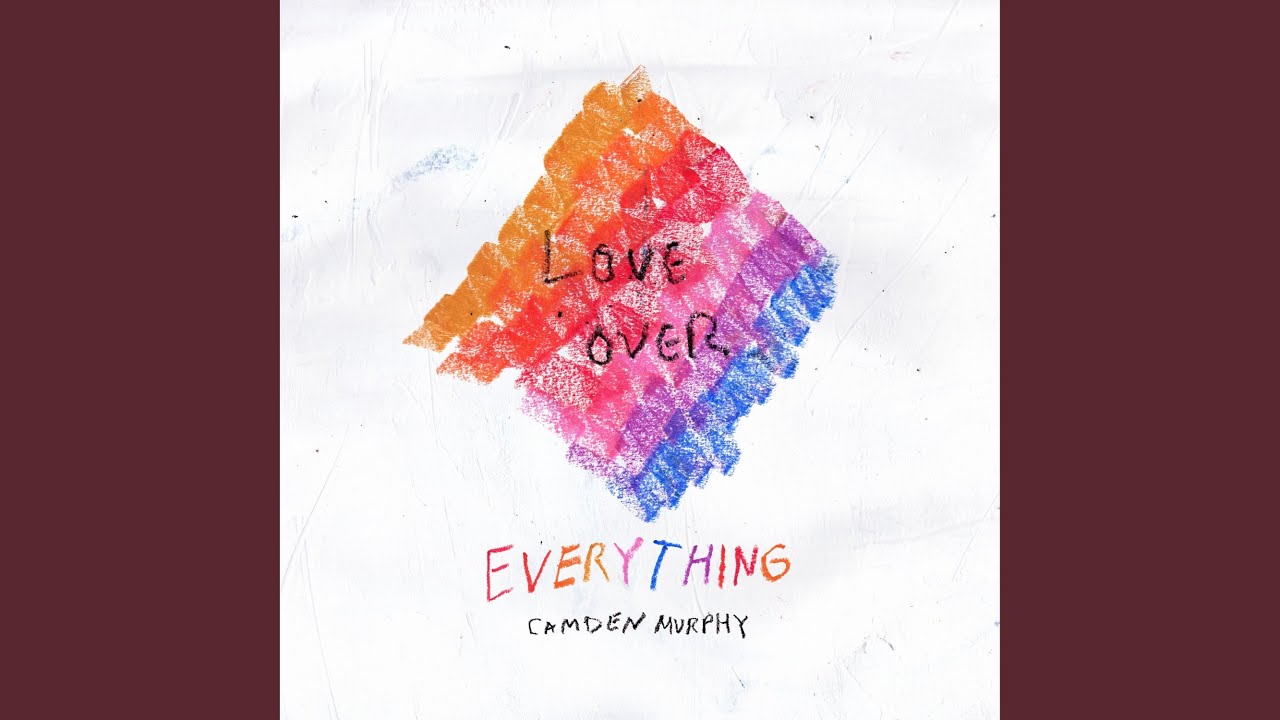 LOVE
OVER
EVERYTHING
CAMDEN MURPHY